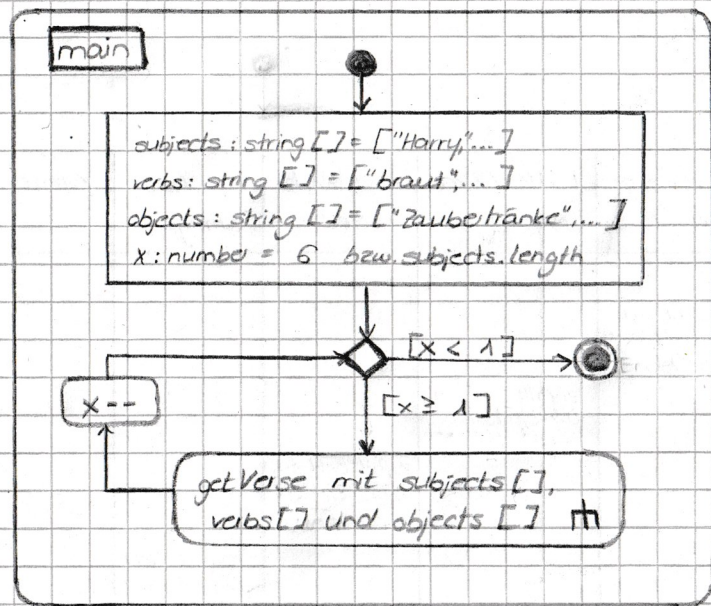 main
subjects : string [] = ["Harry",...]
verbs: string [] = ["braut",... ]
objects : string [] = ["Zaubertränke",... ]
x : number = 6 bzw. subjects.length
[x < 1]
x--
[x ≥ 1]
getVerse mit subjects [],
verbs[] und objects []